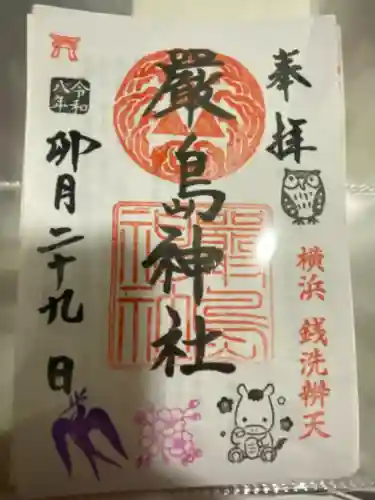 奉拝
横浜 銭洗辨天
嚴島神社
令和八年
卯月二十九日